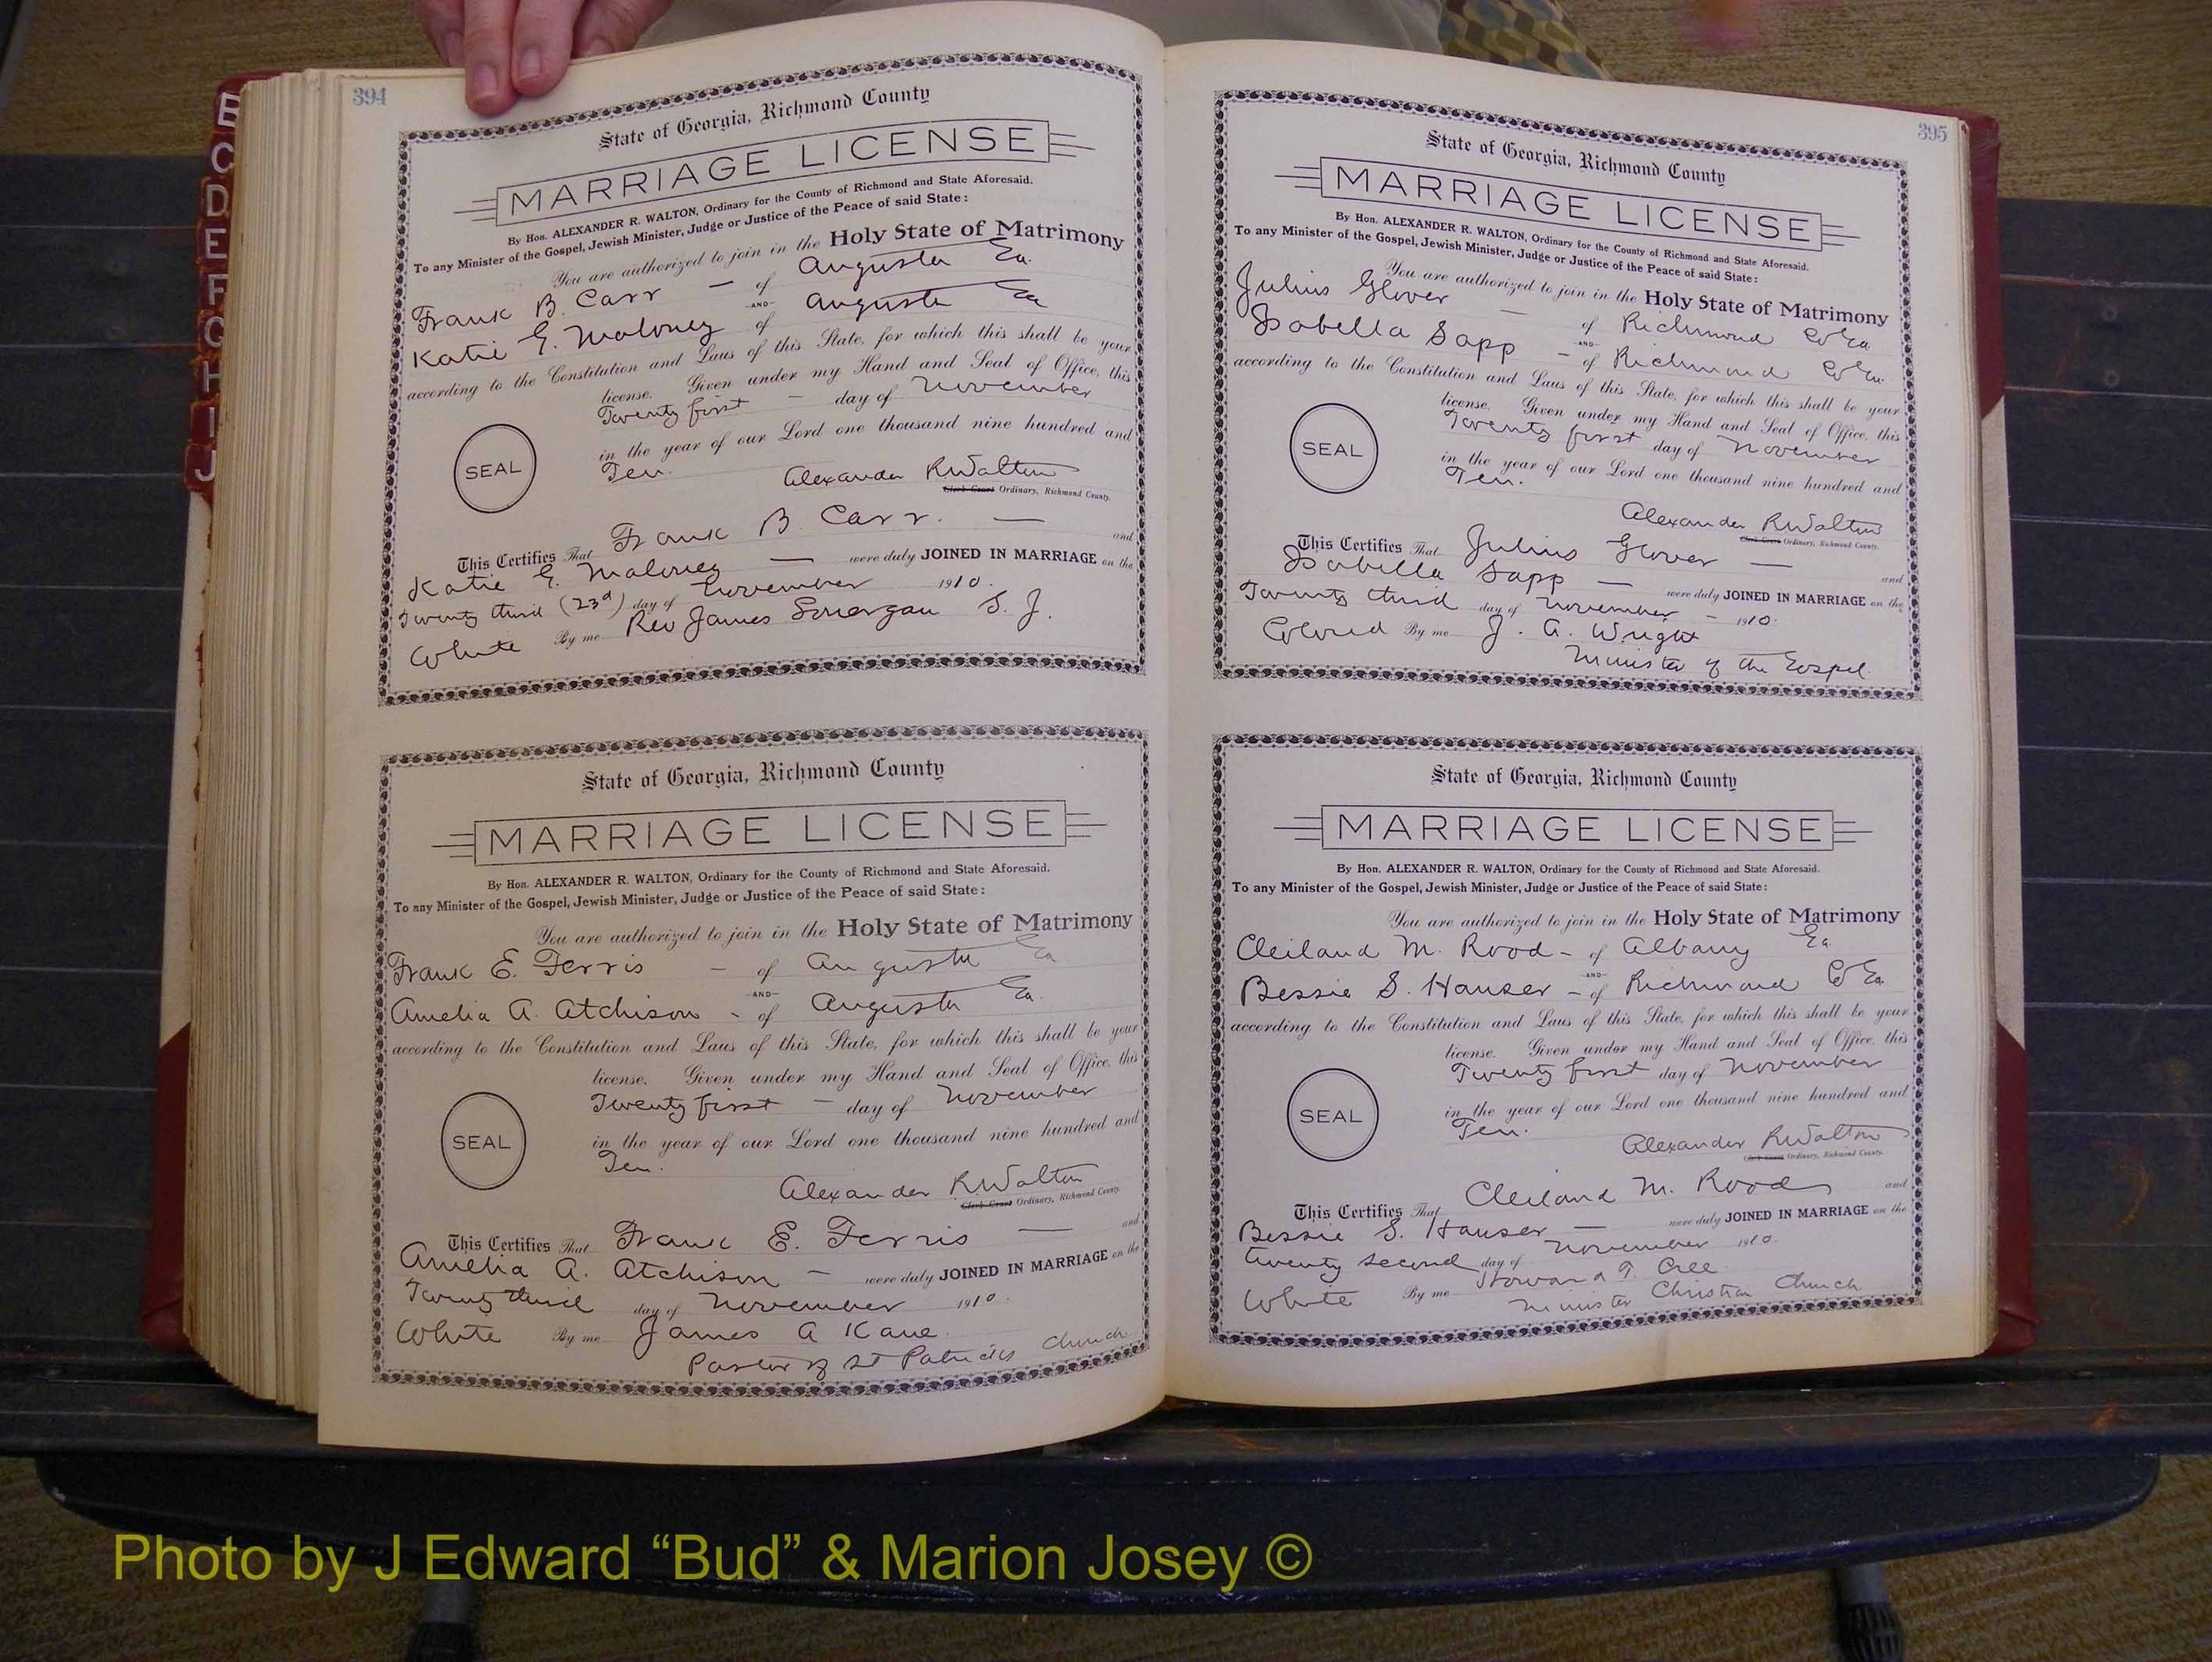 B
C
D
E
F
G
H
I
J
394
State of Georgia, Richmond County
MARRIAGE LICENSE
By Hon. ALEXANDER R. WALTON, Ordinary for the County of Richmond and State Aforesaid.
To any Minister of the Gospel, Jewish Minister, Judge or Justice of the Peace of said State:
You are authorized to join in the Holy State of Matrimony
Frank B. Carr — of Augusta Ga.
-AND-
Katie E. Maloney of Augusta Ga
according to the Constitution and Laws of this State, for which this shall be your
license. Given under my Hand and Seal of Office, this
Twenty first — day of November
in the year of our Lord one thousand nine hundred and
Ten.
SEAL
Alexander R Walton
Clerk Court Ordinary, Richmond County.
This Certifies That Frank B. Carr. — and
Katie E. Maloney — were duly JOINED IN MARRIAGE on the
Twenty third (23d) day of November 1910.
White By me Rev James S. J.
State of Georgia, Richmond County
MARRIAGE LICENSE
By Hon. ALEXANDER R. WALTON, Ordinary for the County of Richmond and State Aforesaid.
To any Minister of the Gospel, Jewish Minister, Judge or Justice of the Peace of said State:
You are authorized to join in the Holy State of Matrimony
Frank E. Ferris — of Augusta Ga
-AND-
Amelia A. Atchison - of Augusta Ga.
according to the Constitution and Laws of this State, for which this shall be your
license. Given under my Hand and Seal of Office, this
Twenty first — day of November
in the year of our Lord one thousand nine hundred and
Ten.
SEAL
Alexander R. Walton
Clerk Court Ordinary, Richmond County.
This Certifies That Frank E. Ferris — and
Amelia A. Atchison — were duly JOINED IN MARRIAGE on the
Twenty third day of November 1910.
White By me James A Kane
Pastor of St Patricks Church
395
State of Georgia, Richmond County
MARRIAGE LICENSE
By Hon. ALEXANDER R. WALTON, Ordinary for the County of Richmond and State Aforesaid.
To any Minister of the Gospel, Jewish Minister, Judge or Justice of the Peace of said State:
You are authorized to join in the Holy State of Matrimony
Julius Glover — of Richmond Co Ga
-AND-
Isabella Sapp — of Richmond Co Ga.
according to the Constitution and Laws of this State, for which this shall be your
license. Given under my Hand and Seal of Office, this
Twenty first day of November
in the year of our Lord one thousand nine hundred and
Ten.
SEAL
Alexander R Walton
Clerk Court Ordinary, Richmond County.
This Certifies That Julius Glover — and
Isabella Sapp — were duly JOINED IN MARRIAGE on the
Twenty third day of November — 1910.
Colored By me J. A. Wright
Minister of the Gospel.
State of Georgia, Richmond County
MARRIAGE LICENSE
By Hon. ALEXANDER R. WALTON, Ordinary for the County of Richmond and State Aforesaid.
To any Minister of the Gospel, Jewish Minister, Judge or Justice of the Peace of said State:
You are authorized to join in the Holy State of Matrimony
Cleiland M. Rood - of Albany Ga
-AND-
Bessie S. Hauser — of Richmond Co Ga.
according to the Constitution and Laws of this State, for which this shall be your
license. Given under my Hand and Seal of Office, this
Twenty first day of November
in the year of our Lord one thousand nine hundred and
Ten.
SEAL
Alexander R Walton
Clerk Court Ordinary, Richmond County.
This Certifies That Cleiland M. Rood and
Bessie S. Hauser — were duly JOINED IN MARRIAGE on the
twenty second day of November 1910.
White By me Howard T. Cree
Minister Christian Church
Photo by J Edward “Bud” & Marion Josey ©